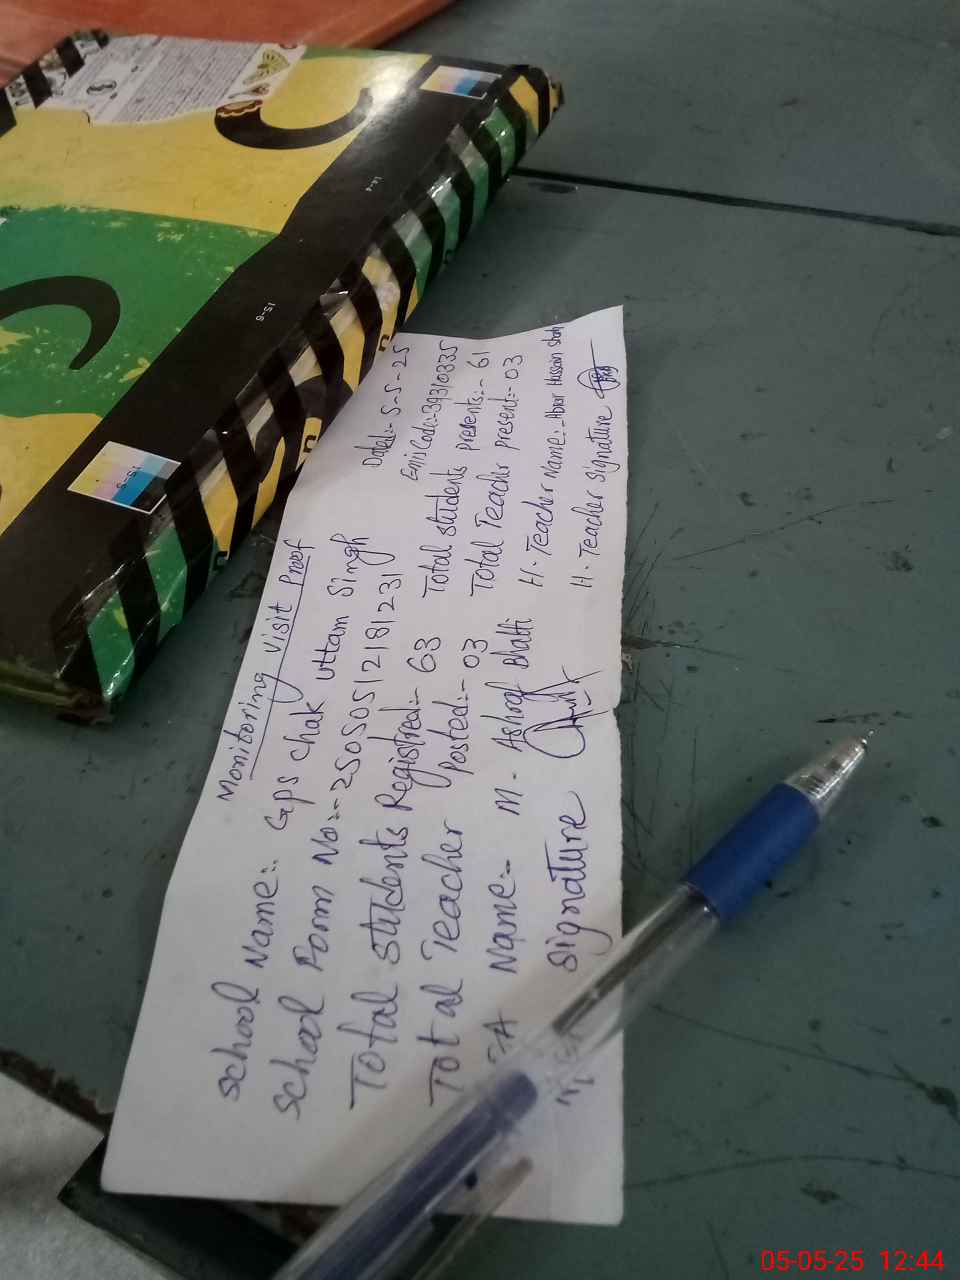 Monitoring visit Proof
Dated:- 5-5-25
School Name:- Gps chak uttam Singh
Emis Code:- 39310335
School Form No:- 25050512181231
Total Students Registred:- 63 Total students presents:- 61
Total Teacher Posted:- 03 Total Teacher present:- 03
Name:- M. Ashraf Bhatti H. Teacher Name:- Abrar Hussain Shah
Signature H. Teacher Signature
15-6
15-5
05-05-25 12:44